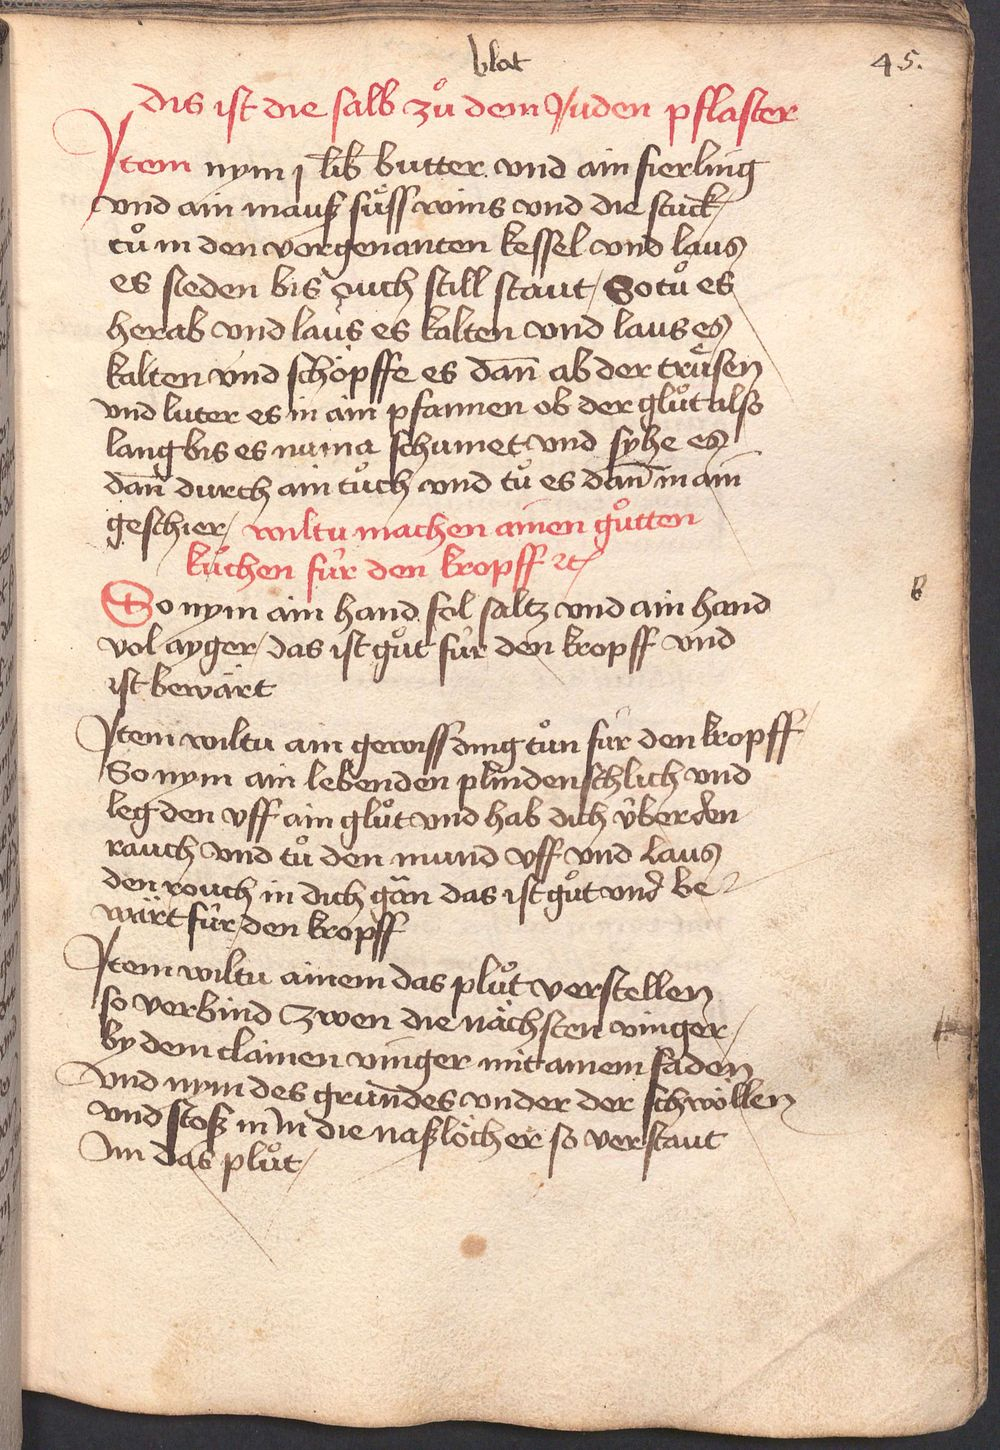 blat 45.
Dis ist die salb zů dem Juden pflaster
Jtem nym j lib butter vnd ain fierling
vnd ain mauß sůss wins vnd die stuck
tů in den vorgenanten kessel vnd laus
es sieden bis ouch still staut / So tů es
herab vnd laus es kalten vnd laus es
kalten vnd schöpffe es dañ ab der trůsen
vnd luter es in ain pfannen ob der glůt also
lang bis es numa schumet vnd syhe es
dañ durch ain tůch vnd tů es dañ in ain
geschier / wiltu machen ainen gůtten
kůchen fúr den kropff
So nym ain hand fol saltz vnd ain hand
vol ayger / das ist gůt fúr den kropff vnd
ist bewärt
Jtem wiltu ain gewiss ding tůn fúr den kropff
So nym ain lebenden plinden schlich vnd
leg den vff ain glůt vnd hab dich v́ber den
rauch vnd tů den mund vff vnd laus
den rouch in dich gän das ist gůt vnd be
wärt fúr den kropff
Jtem wiltu ainem das plůt verstellen
so verbind zwen die nächsten vinger /
by dem clainen vinger mit ainem faden
vnd nym des grundes vnder der schwöllen
vnd stoß in in die naßlöcher so verstaut
im das plůt /